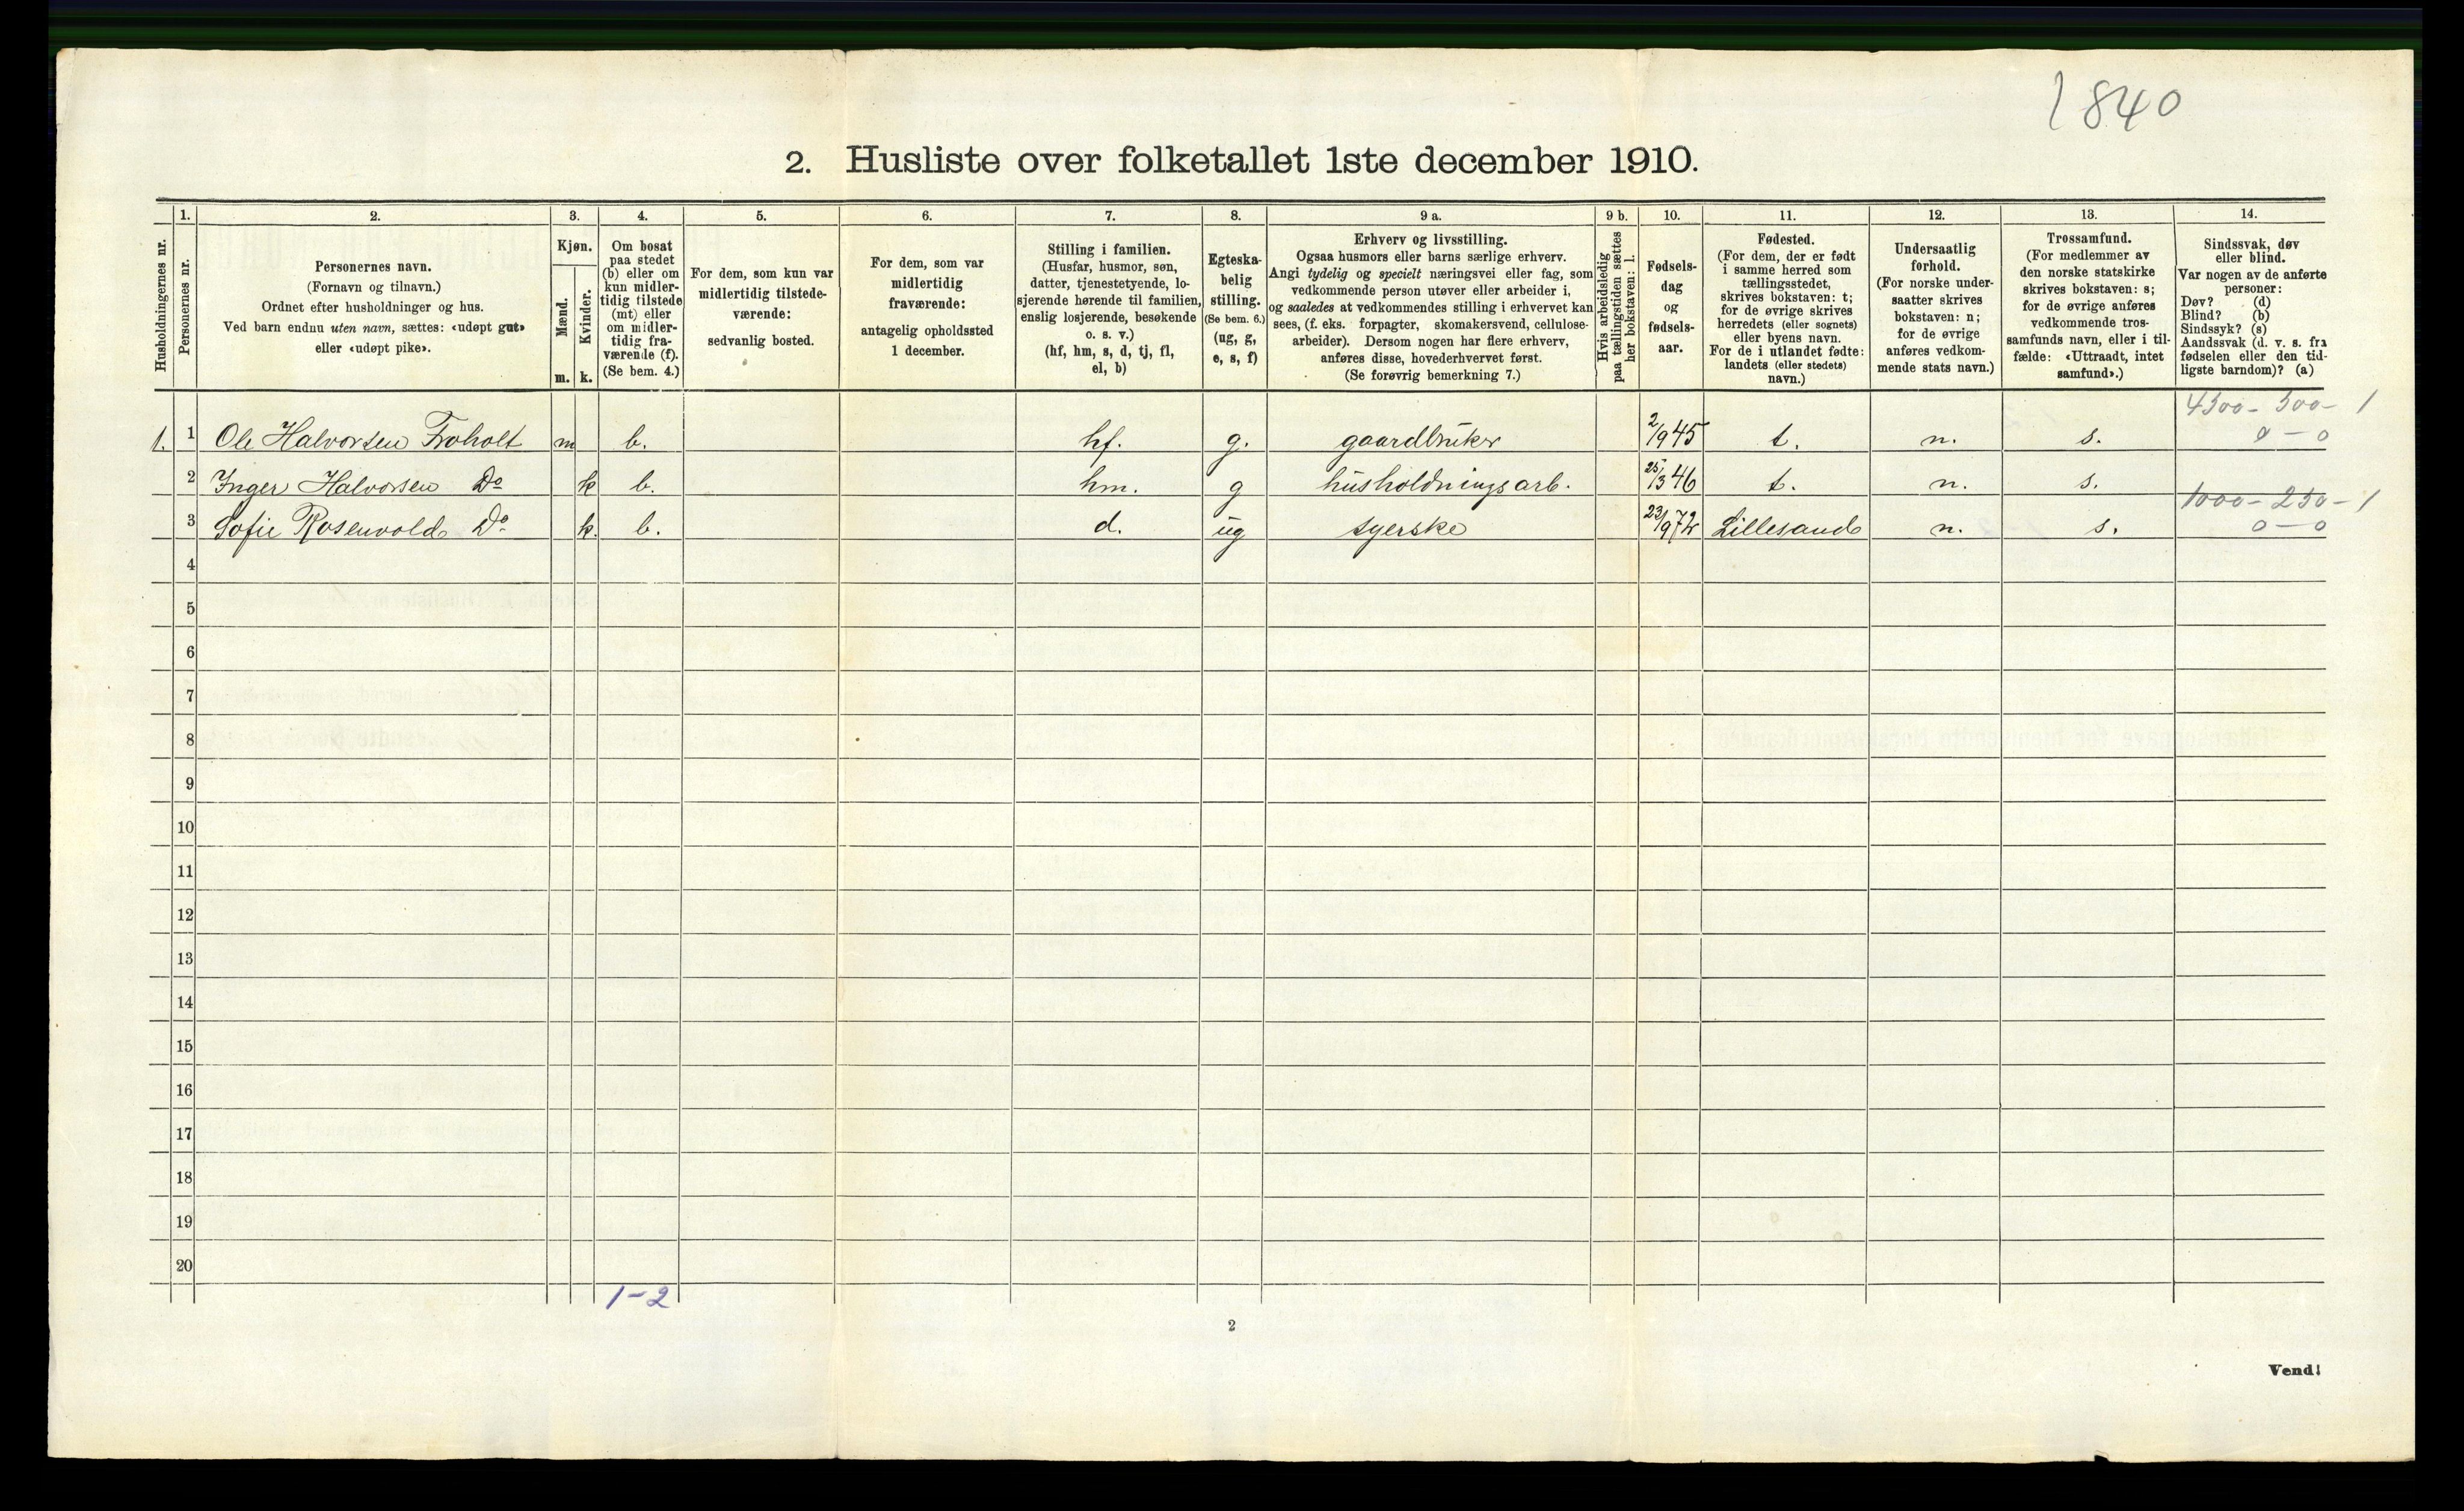 1840
2. Husliste over folketallet 1ste december 1910.
Husholdningernes nr.
1.
Personernes nr.
2.
Personernes navn.
(Fornavn og tilnavn.)
Ordnet efter husholdninger og hus.
Ved barn endnu uten navn, sættes: «udøpt gut»
eller «udøpt pike».
3.
Kjøn.
Mænd.
Kvinder.
m. k.
4.
Om bosat
paa stedet
(b) eller om
kun midler-
tidig tilstede
(mt) eller
om midler-
tidig fra-
værende (f).
(Se bem. 4.)
5.
For dem, som kun var
midlertidig tilstede-
værende:
sedvanlig bosted.
6.
For dem, som var
midlertidig
fraværende:
antagelig opholdssted
1 december.
7.
Stilling i familien.
(Husfar, husmor, søn,
datter, tjenestetyende, lo-
sjerende hørende til familien,
enslig losjerende, besøkende
o. s. v.)
(hf, hm, s, d, tj, fl,
el, b)
8.
Egteska-
belig
stilling.
(Se bem. 6.)
(ug, g,
e, s, f)
9 a.
Erhverv og livsstilling.
Ogsaa husmors eller barns særlige erhverv.
Angi tydelig og specielt næringsvei eller fag, som
vedkommende person utøver eller arbeider i,
og saaledes at vedkommendes stilling i erhvervet kan
sees, (f. eks. forpagter, skomakersvend, cellulose-
arbeider). Dersom nogen har flere erhverv,
anføres disse, hovederhvervet først.
(Se forøvrig bemerkning 7.)
9 b.
Hvis arbeidsledig
paa tællingstiden sættes
her bokstaven: l.
10.
Fødsels-
dag
og
fødsels-
aar.
11.
Fødested.
(For dem, der er født
i samme herred som
tællingsstedet,
skrives bokstaven: t;
for de øvrige skrives
herredets (eller sognets)
eller byens navn.
For de i utlandet fødte:
landets (eller stedets)
navn.)
12.
Undersaatlig
forhold.
(For norske under-
saatter skrives
bokstaven: n;
for de øvrige
anføres vedkom-
mende stats navn.)
13.
Trossamfund.
(For medlemmer av
den norske statskirke
skrives bokstaven: s;
for de øvrige anføres
vedkommende tros-
samfunds navn, eller i til-
fælde: «Uttraadt, intet
samfund».)
14.
Sindssvak, døv
eller blind.
Var nogen av de anførte
personer:
Døv? (d)
Blind? (b)
Sindssyk? (s)
Aandssvak (d. v. s. fra
fødselen eller den tid-
ligste barndom)? (a)
4500 - 500 - 1
1. 1 Ole Halvorsen Froholt m b. hf. g. gaardbruker 2/9 45 t. n. s. 0 - 0
2 Inger Halvorsen Do k b. hm. g husholdningsarb. 25/3 46 t. n. s.
1000 - 250 - 1
3 Sofie Rosenvold Do k. b. d. ug syerske 23/9 72 Lillesand n. s. 0 - 0
4
5
6
7
8
9
10
11
12
13
14
15
16
17
18
19
20
1-2
2
Vend!